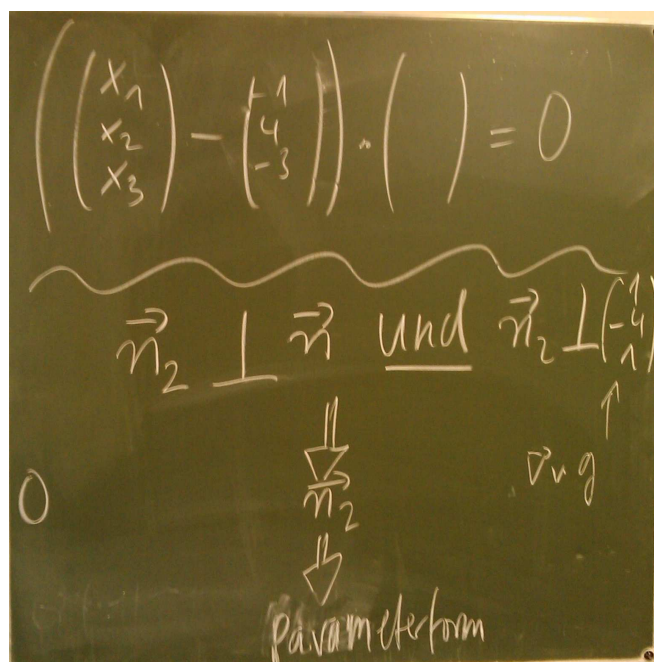 ( ( x₁ x₂ x₃ ) − ( -1 4 -3 ) ) · ( ) = 0
n⃗₂ ⊥ n⃗ und n⃗₂ ⊥ ( 1 -4 1 )
↑
0
n⃗₂
Parameterform